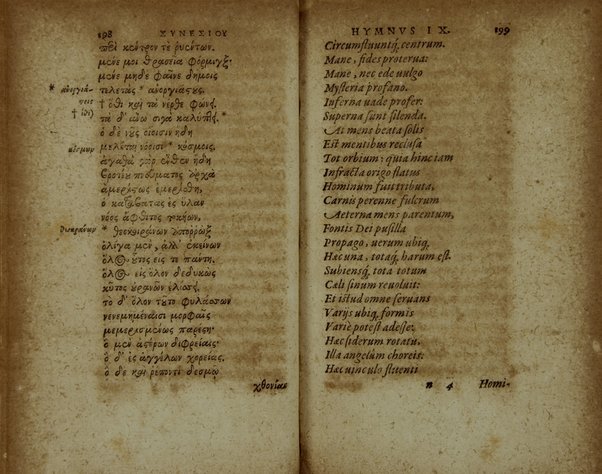 198 ΣΥΝΕΣΙΟΥ
περὶ κέντρον τε ῥυέντων.
μένε μοι θρασεῖα φόρμιγξ·
μένε μηδὲ φαῖνε δήμοις
τελετὰς * ἀνοργιάστοις.
† ὅθι καὶ τὰ νέρθε φώνει,
τὰ δ' ἄνω σιγὰ καλύπτῃ. *
ὁ δὲ νοῦς οἵοισιν ἤδη
μέλεται νόοισι * κόσμοις.
ἀγαθὰ γὰρ ἔνθεν ἤδη
βροτέου πνεύματος ἀρχὰ
ἀμερίστως ἐμερίσθη,
ὁ καταιβάτας ἐς ὕλαν
νόος ἄφθιτος τοκήων,
* ὑποκοιράνων ἀπορρὼξ
ὀλίγα μὲν, ἀλλ' ἐκείνων
ὅλος οὗτος εἷς τε πάντη,
ὅλος εἰς ὅλον δεδυκὼς
κύτος οὐρανῶν ἑλίσσει,
τὸ δ' ὅλον τοῦτο φυλάσσων
νενεμημέναισι μορφαῖς
μεμερισμένως παρέστη·
ὁ μὲν ἀστέρων διφρείαις·
ὁ δ' ἐς ἀγγέλων χορείας,
ὁ δὲ καὶ ῥέποντι δεσμῷ
χθονίαν
HYMNVS IX. 199
Circumfluuntq́, centrum.
Mane, fides proterua:
Mane, nec ede uulgo
Mysteria profano.
Inferna uade profer:
Superna sunt silenda.
At mens beata solis
Est mentibus reclusa
Tot orbium: quia hinc iam
Infracta origo flatus
Hominum fuit tributa,
Carnis perenne fulcrum
Aeterna mens parentum,
Fontis Dei pusilla
Propago, uerum ubiq́,
Hac una, totaq́, harum est.
Subiensq́, tota totum
Cæli sinum reuoluit:
Et istud omne seruans
Varijs ubiq́, formis
Variè potest adesse:
Hac siderum rotatu.
Illa angelûm choreis:
Hac uinculo fluenti
n 4 Homi-